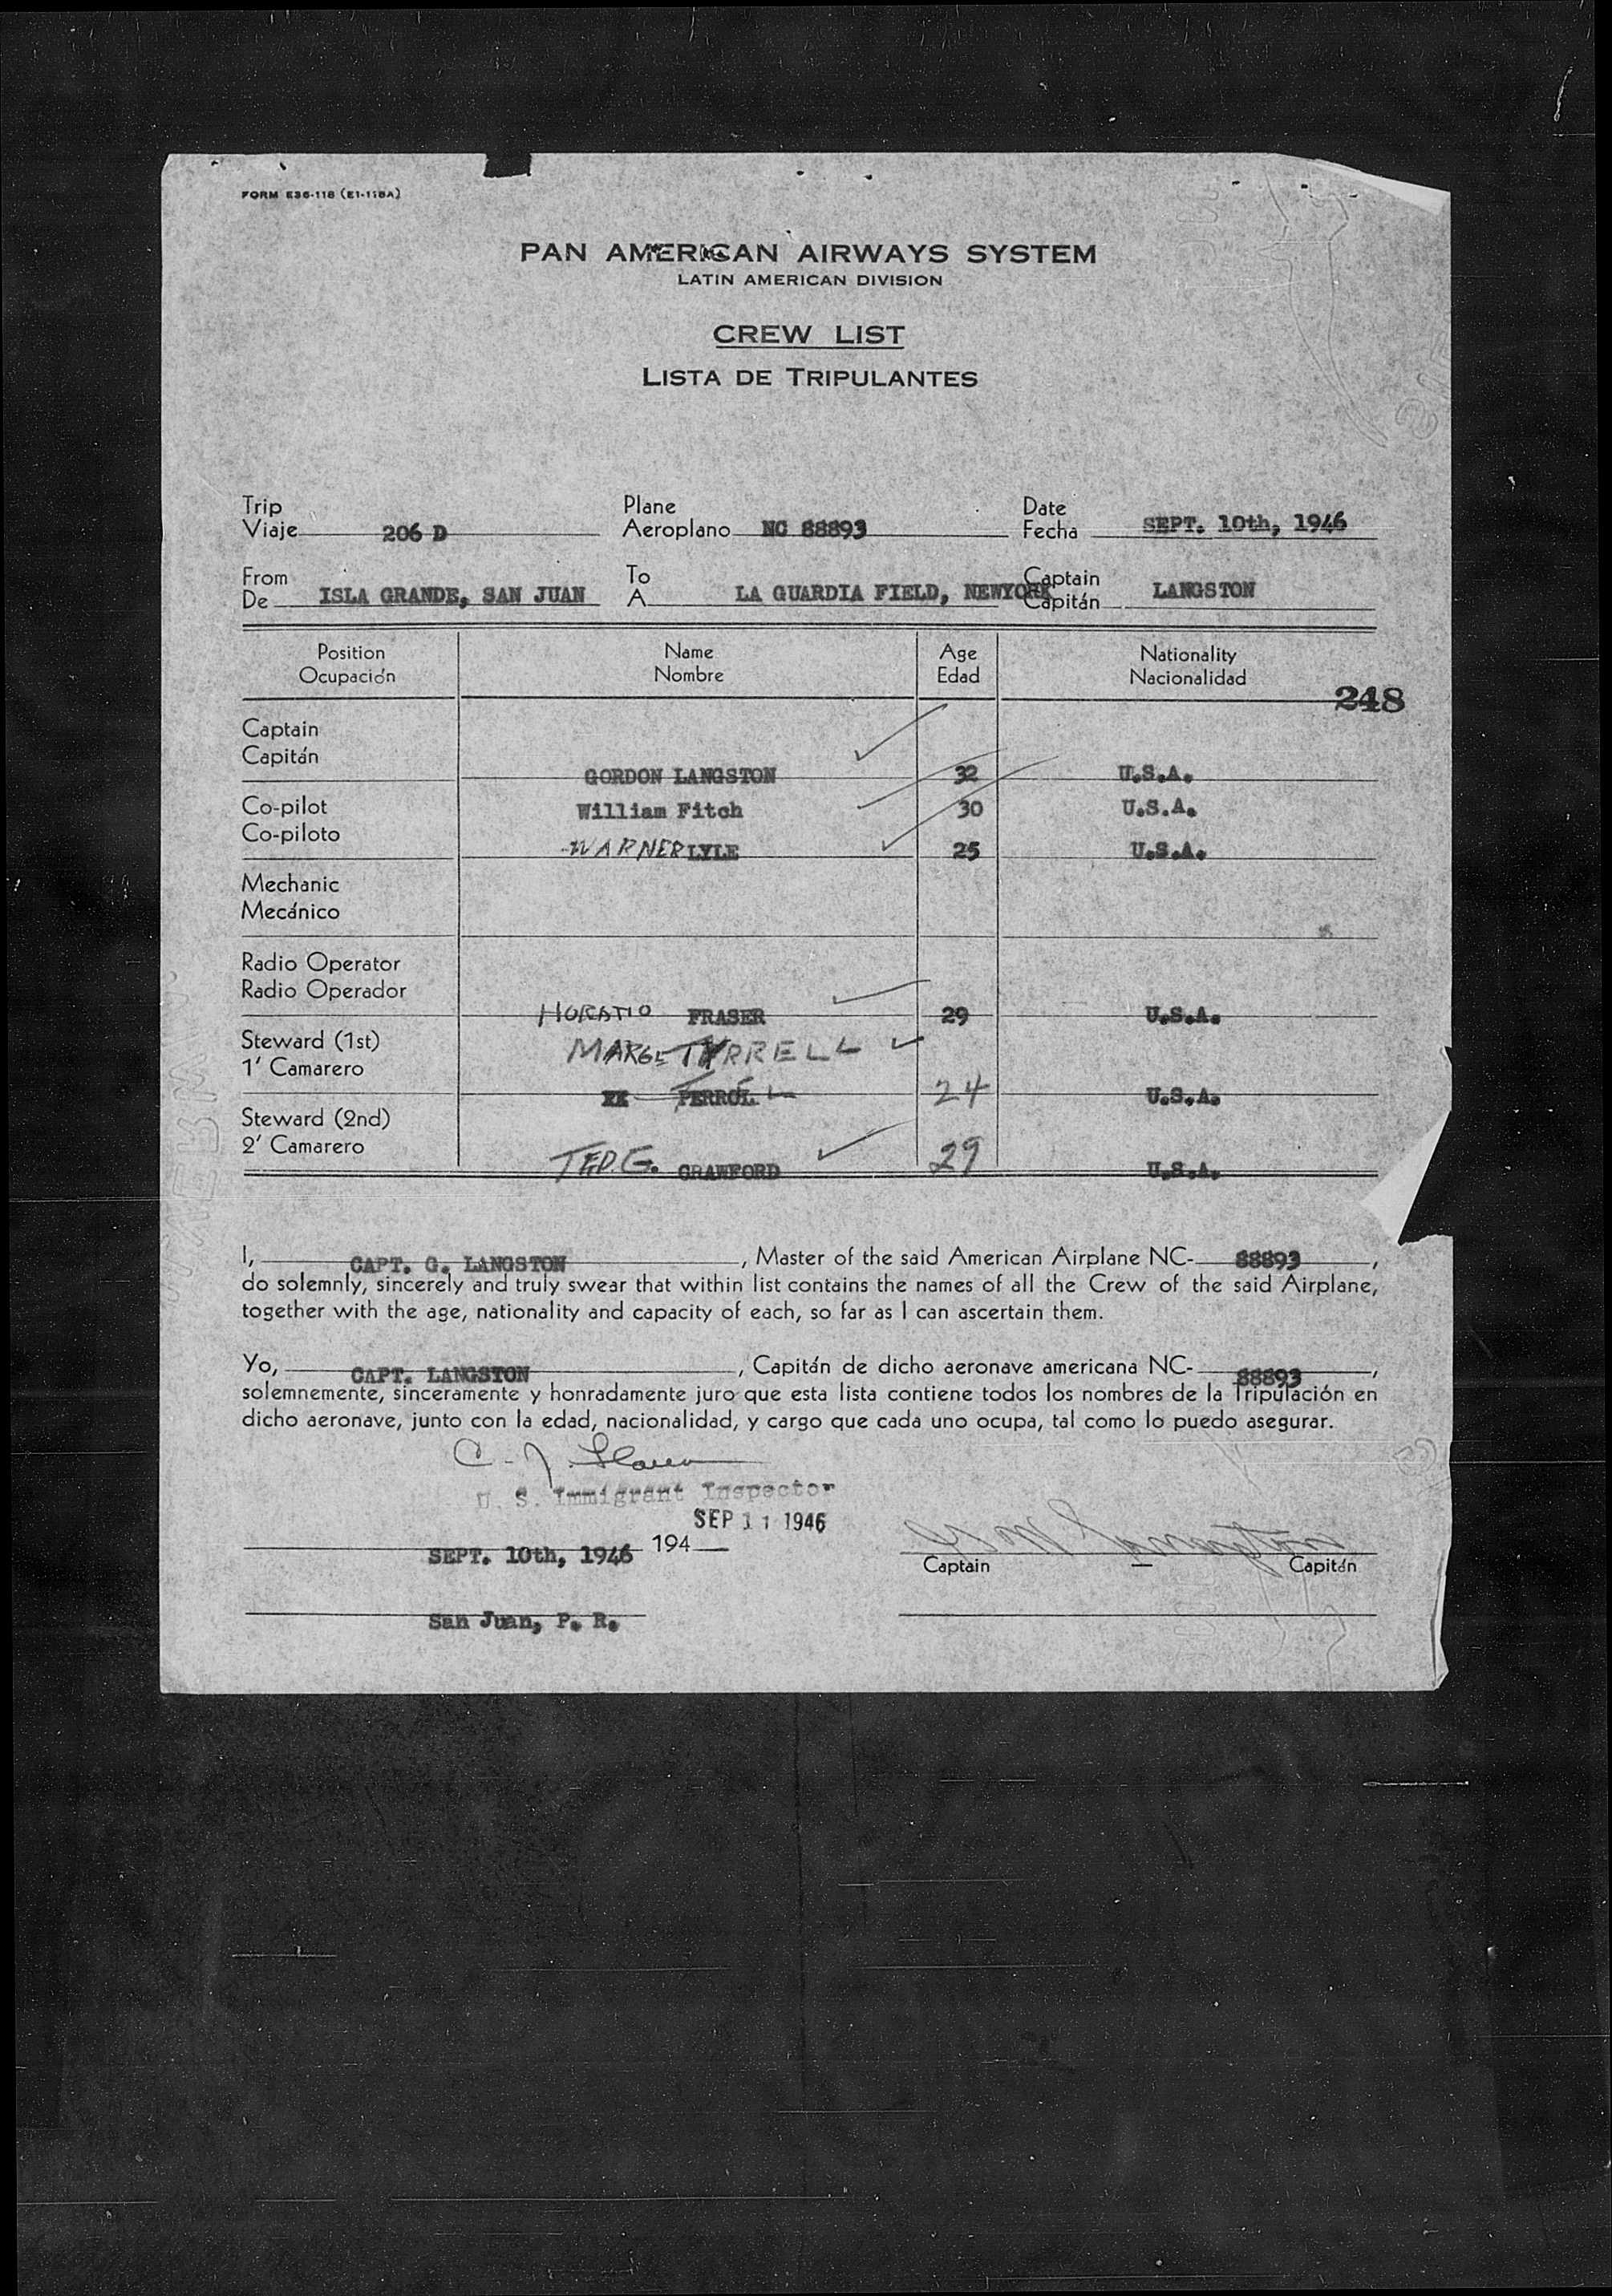 FORM E36-118 (E1-118A)
PAN AMERICAN AIRWAYS SYSTEM
LATIN AMERICAN DIVISION
CREW LIST
LISTA DE TRIPULANTES
Trip Plane Date
Viaje 206 D Aeroplano NC 88893 Fecha SEPT. 10th, 1946
From To Captain
De ISLA GRANDE, SAN JUAN A LA GUARDIA FIELD, NEWYORK Capitán LANGSTON
Position Name Age Nationality
Ocupación Nombre Edad Nacionalidad
248
Captain
Capitán
GORDON LANGSTON 32 U.S.A.
Co-pilot William Fitch 30 U.S.A.
Co-piloto
WARNER LYLE 25 U.S.A.
Mechanic
Mecánico
Radio Operator
Radio Operador
HORATIO FRASER 29 U.S.A.
Steward (1st) MARGE TYRRELL
1' Camarero
XX 24 U.S.A.
Steward (2nd)
2' Camarero
TED.G. CRAWFORD 29 U.S.A.
I, CAPT. G. LANGSTON, Master of the said American Airplane NC- 88893,
do solemnly, sincerely and truly swear that within list contains the names of all the Crew of the said Airplane,
together with the age, nationality and capacity of each, so far as I can ascertain them.
Yo, CAPT. LANGSTON, Capitán de dicho aeronave americana NC- 88893,
solemnemente, sinceramente y honradamente juro que esta lista contiene todos los nombres de la Tripulación en
dicho aeronave, junto con la edad, nacionalidad, y cargo que cada uno ocupa, tal como lo puedo asegurar.
U. S. Immigrant Inspector
SEP 11 1946
SEPT. 10th, 1946 194
G W Langston
Captain — Capitán
San Juan, P. R.